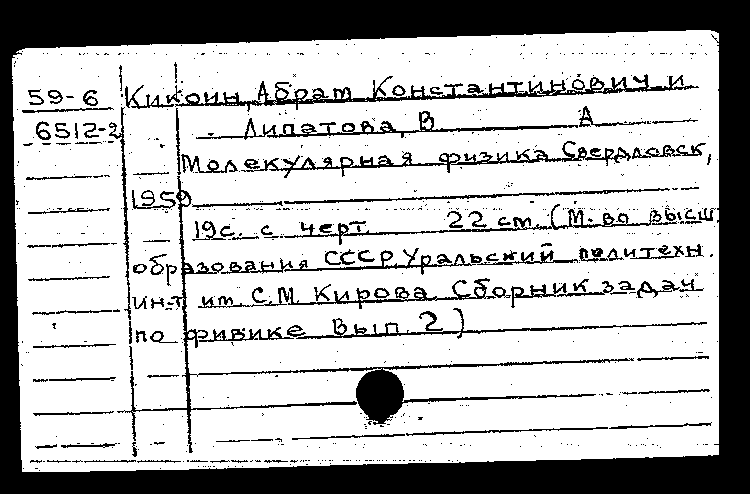 59-6 Кикоин, Абрам Константинович и
6512-2 Липатова, В А
Молекулярная физика Свердловск,
1959
19с. с черт. 22 см. (М-во высш
образования СССР. Уральский политехн.
ин-т им. С.М. Кирова. Сборник задач
по физике Вып. 2)